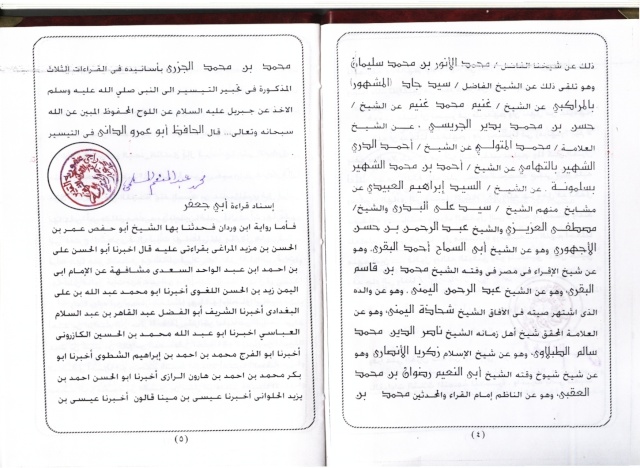 ذلك عن شيخنا الفاضل / محمد الأنور بن محمد سليمان
وهو تلقى ذلك عن الشيخ الفاضل / سيد جاد (المشهور)
بالمراكبي عن الشيخ / غنيم محمد غنيم عن الشيخ /
حسن بن محمد بدير الجريسي . عن الشيخ
العلامة / محمد المتولي عن الشيخ / أحمد الدري
الشهير بالتهامي عن الشيخ / أحمد بن محمد الشهير
بسلمونة . عن الشيخ / السيد إبراهيم العبيدي عن
مشايخ منهم الشيخ / سيد على البدرى والشيخ/
مصطفى العزيزي والشيخ عبد الرحمن بن حسن
الأجهوري وهو عن الشيخ أبي السماح أحمد البقرى وهو
عن شيخ الإقراء فى مصر فى وقته الشيخ محمد بن قاسم
البقرى وهو عن الشيخ عبد الرحمن اليمنى وهو عن والده
الذى اشتهر صيته فى الافاق الشيخ شحاذة اليمنى وهو عن
العلامة المحقق شيخ أهل زمانه الشيخ ناصر الدين محمد
سالم الطبلاوى وهو عن شيخ الإسلام زكريا الأنصارى وهو
عن شيخ شيوخ وقته الشيخ أبي النعيم رضوان بن محمد
العقبى وهو عن الناظم إمام القراء والمحدثين محمد بن
(٤)
محمد بن محمد الجزرى بأسانيده فى القراءات الثلاث
المذكورة فى تحبير التيسير الى النبى صلي الله عليه وسلم
الاخذ عن جبريل عليه السلام عن اللوح المحفوظ المبين عن الله
سبحانه وتعالى... قال الحافظ أبو عمرو الدانى فى التيسير
محمد عبد المنعم
إسناد قراءة أبي جعفر
فأما رواية ابن وردان فحدثنا بها الشيخ أبو حفص عمر بن
الحسن بن مزيد المراغى بقراءتى عليه قال اخبرنا أبو الحسن على
بن احمد ابن عبد الواحد السعدى مشافهة عن الإمام ابى
اليمن زيد بن الحسن اللغوى أخبرنا ابو محمد عبد الله بن على
البغدادى أخبرنا الشريف أبو الفضل عبد القاهر بن عبد السلام
العباسي اخبرنا ابو عبد الله محمد بن الحسين الكازرونى
أخبرنا ابو الفرج محمد بن احمد بن إبراهيم الشطوى أخبرنا ابو
بكر محمد بن احمد بن هارون الرازى أخبرنا ابو الحسن احمد بن
يزيد الحلوانى أخبرنا عيسى بن مينا قالون أخبرنا عيسى بن
(٥)